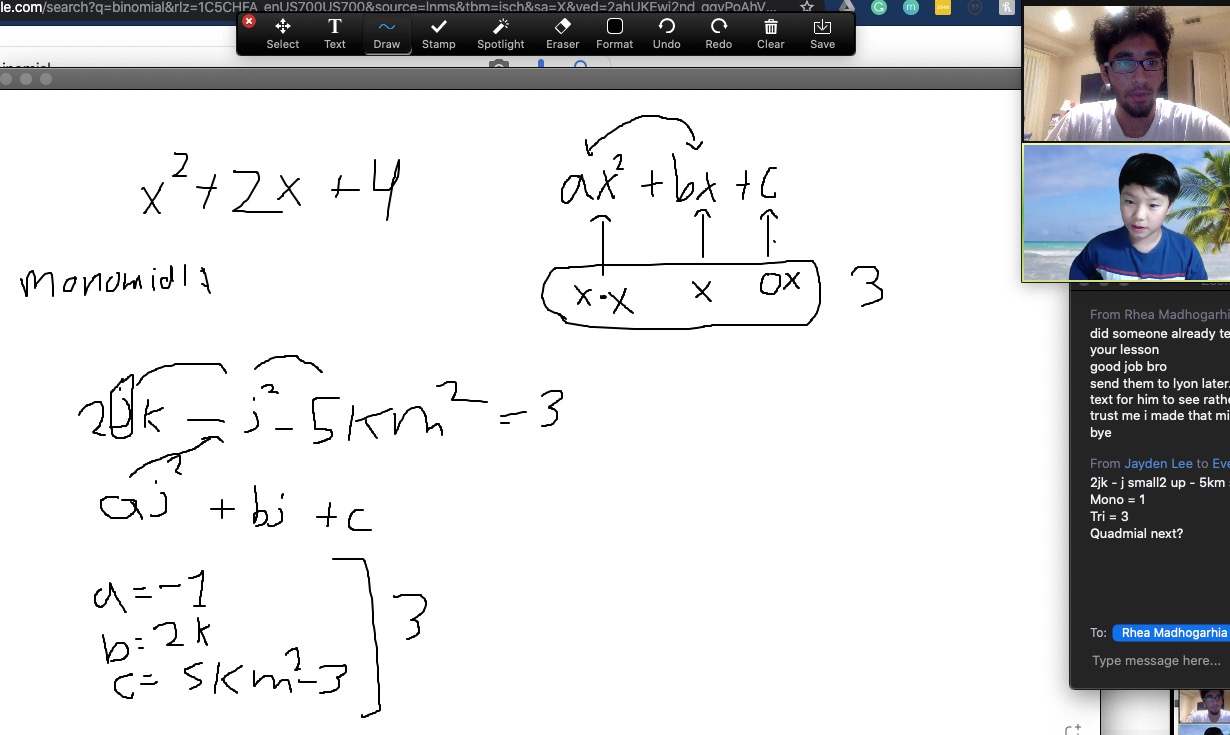 le.com/search?q=binomial&rlz=1C5CHFA_enUS700US700&source=lnms&tbm=isch&sa=X&ved=2ahUKEwi2nd_
Select Text Draw Stamp Spotlight Eraser Format Undo Redo Clear Save
x²+2x+4
ax²+bx+c
monomial:
x·x x 0x 3
2jk - j² - 5km² = 3
aj² + bj + c
a=-1
b=2k
c= 5km²-3
3
From Rhea Madhogarhi
did someone already te
your lesson
good job bro
send them to lyon later.
text for him to see rathe
trust me i made that mi
bye
From Jayden Lee to Eve
2jk - j small2 up - 5km
Mono = 1
Tri = 3
Quadmial next?
To: Rhea Madhogarhia
Type message here...